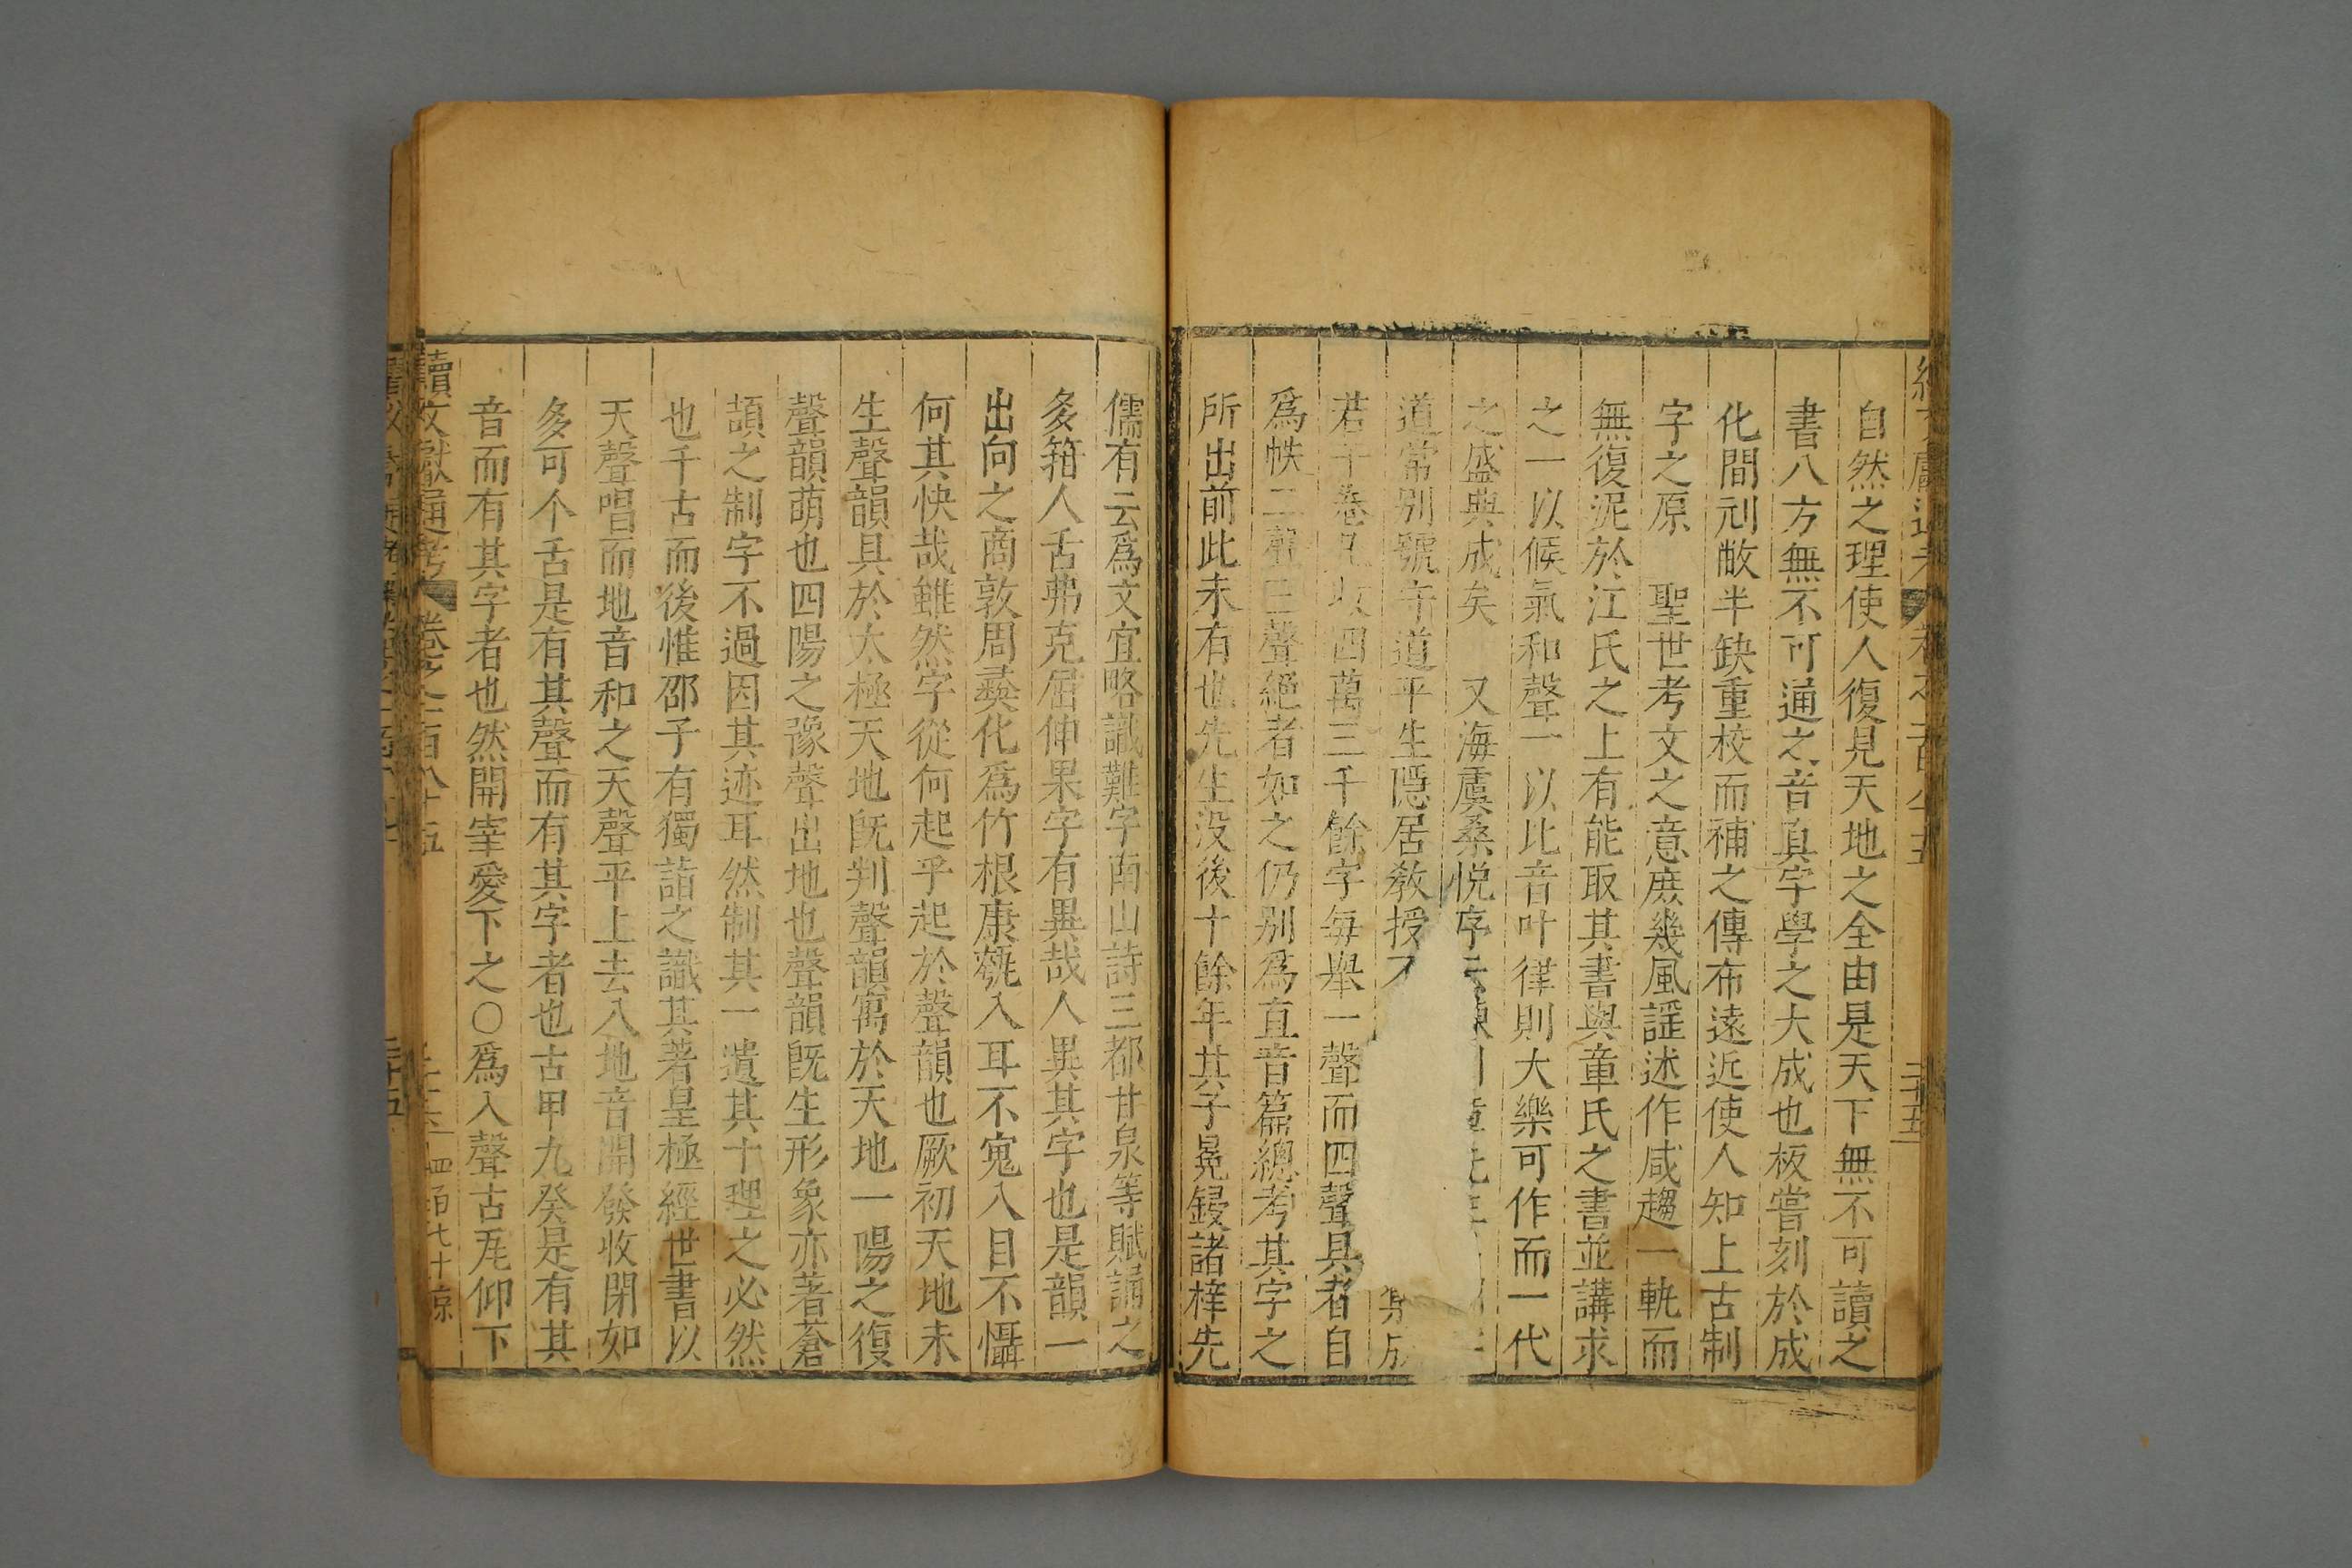 自然之理使人復見天地之全由是天下無不可讀之
書八方無不可通之音真字學之大成也板嘗刻於成
化間刓敝半缺重校而補之傳布遠近使人知上古制
字之原 聖世考文之意庶幾風謡述作咸趨一軌而
無復泥於江氏之上有能取其書與童氏之書並講求
之一以候氣和聲一以比音叶律則大樂可作而一代
之盛典成矣 又海虞桑悦序云
道常别號守道平生隱居教授
若干卷凡收四萬三千餘字每舉一聲而四聲具者自
爲帙二聲三聲絕者如之仍别爲直音篇總考其字之
所出前此未有也先生没後十餘年其子冕鋟諸梓先
儒有云爲文宜略識難字南山詩三都甘泉等賦誦之
多箝人舌弗克屈伸果字有異哉人異其字也是韻一
出向之商敦周彝化爲竹根康瓠入耳不寃入目不懾
何其快哉雖然字從何起乎起於聲韻也厥初天地未
生聲韻具於太極天地旣判聲韻寓於天地一陽之復
聲韻萌也四陽之豫聲出地也聲韻旣生形象亦著蒼
頡之制字不過因其迹耳然制其一遺其十理之必然
也千古而後惟邵子有獨詣之識其著皇極經世書以
天聲唱而地音和之天聲平上去入地音開發收閉如
多可个舌是有其聲而有其字者也古甲九癸是有其
音而有其字者也然開宰愛下之○爲入聲古瓦仰下
續文獻通考 卷之一百八十五